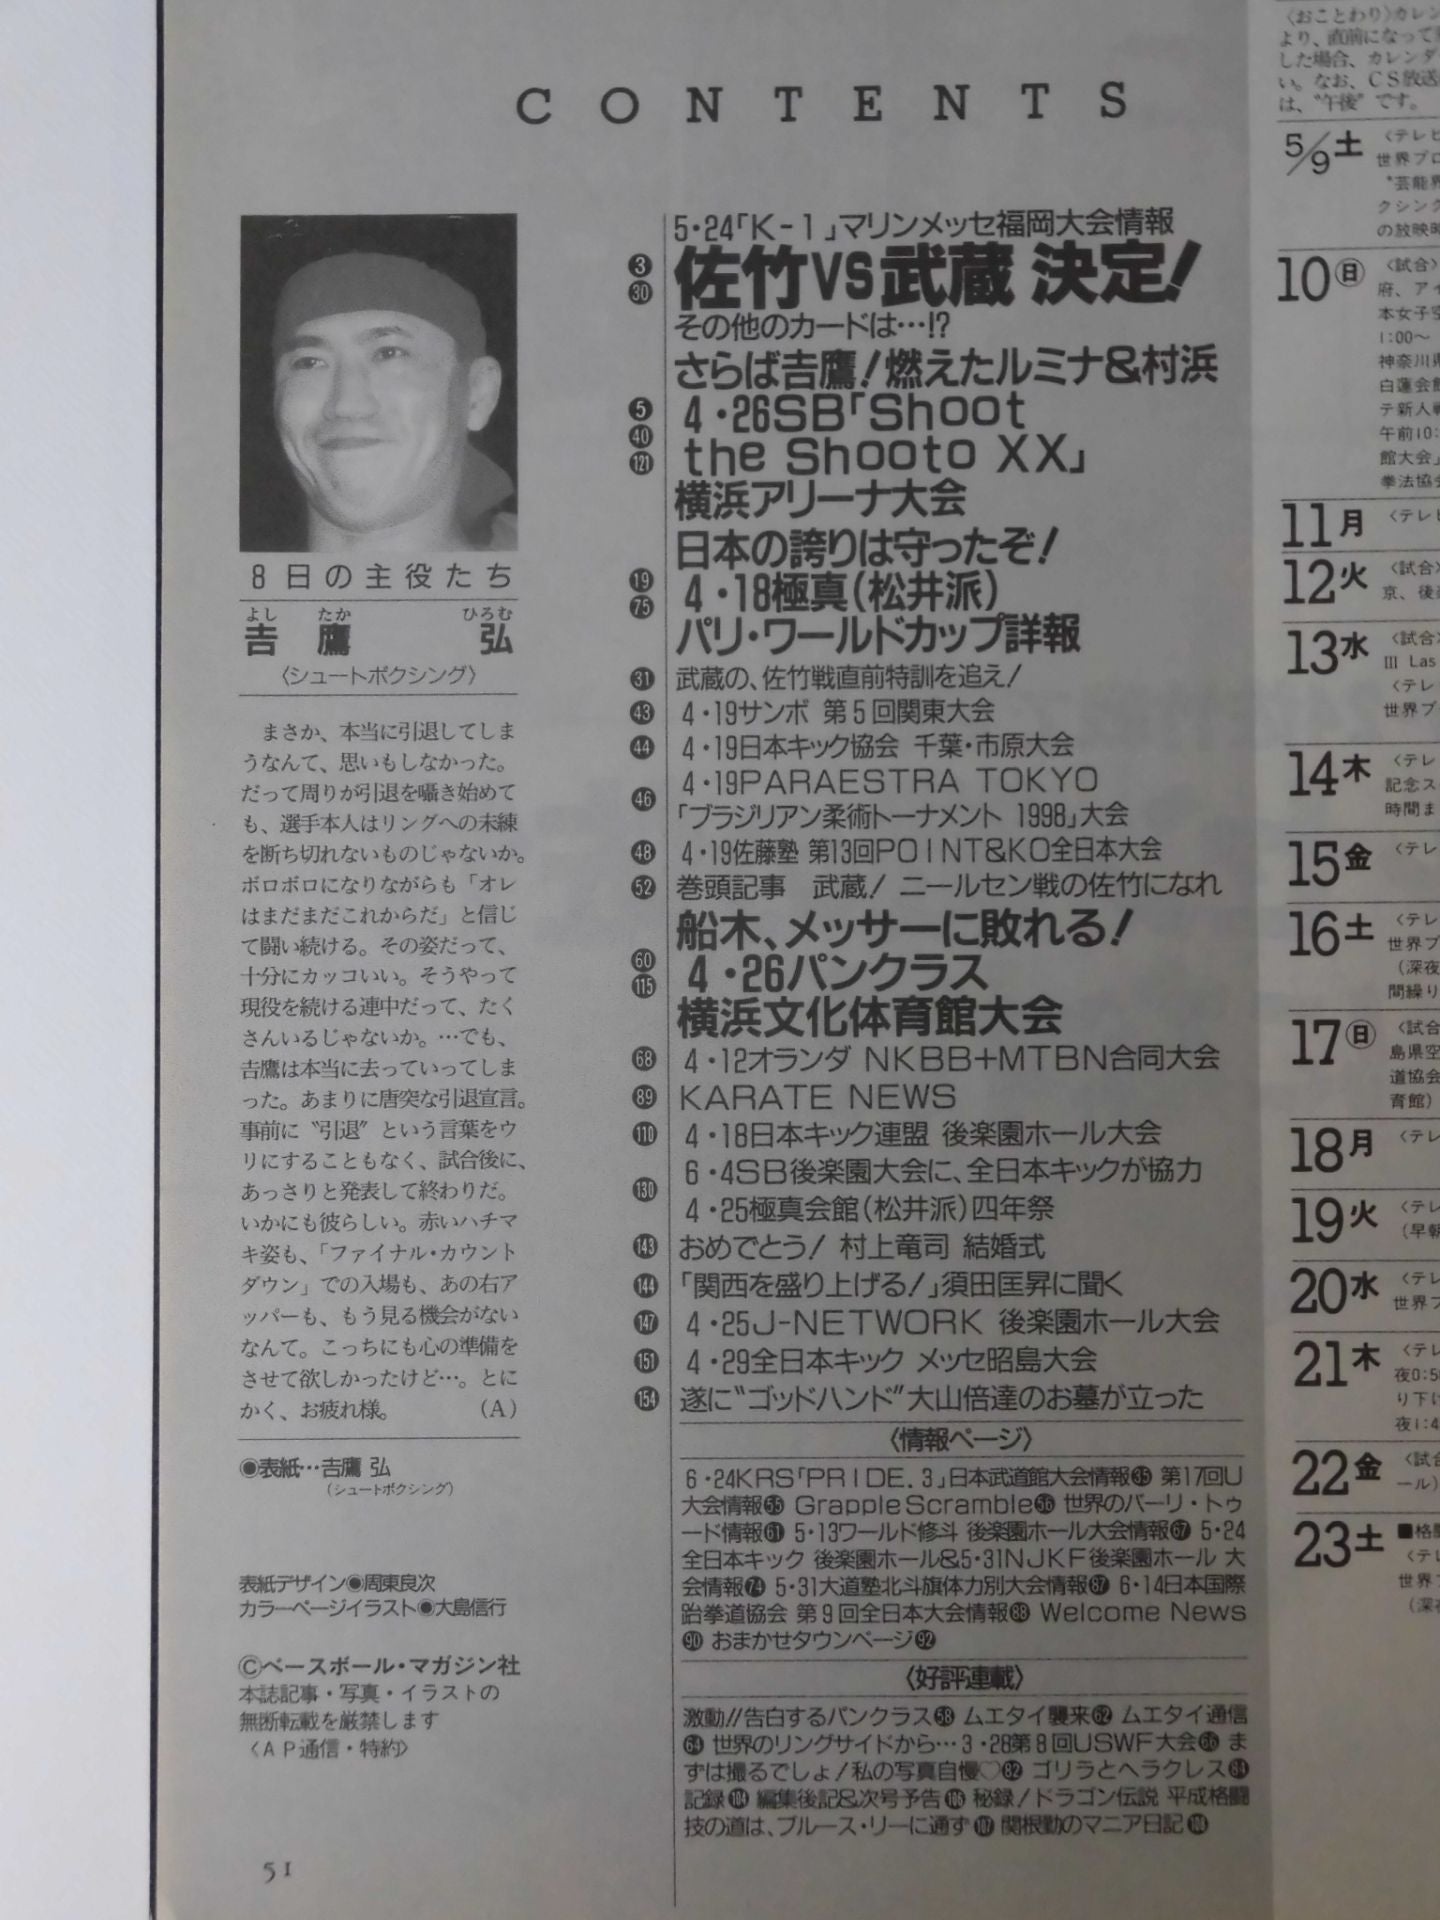 CONTENTS
8日の主役たち
よし たか ひろむ
吉鷹 弘
〈シュートボクシング〉
まさか、本当に引退してしま
うなんて、思いもしなかった。
だって周りが引退を囁き始めて
も、選手本人はリングへの未練
を断ち切れないものじゃないか。
ボロボロになりながらも「オレ
はまだまだこれからだ」と信じ
て闘い続ける。その姿だって、
十分にカッコいい。そうやって
現役を続ける連中だって、たく
さんいるじゃないか。…でも、
吉鷹は本当に去っていってしま
った。あまりに唐突な引退宣言。
事前に〝引退〟という言葉をウ
リにすることもなく、試合後に、
あっさりと発表して終わりだ。
いかにも彼らしい。赤いハチマ
キ姿も、「ファイナル・カウント
ダウン」での入場も、あの右ア
ッパーも、もう見る機会がない
なんて。こっちにも心の準備を
させて欲しかったけど…。とに
かく、お疲れ様。 (A)
◉表紙…吉鷹 弘
(シュートボクシング)
表紙デザイン◉周東良次
カラーページイラスト◉大島信行
©ベースボール・マガジン社
本誌記事・写真・イラストの
無断転載を厳禁します
〈AP通信・特約〉
51
5・24「K-1」マリンメッセ福岡大会情報
3 30 佐竹VS武蔵 決定!
その他のカードは…!?
さらば吉鷹!燃えたルミナ&村浜
5 4・26SB「Shoot
40 121 the Shooto XX」
横浜アリーナ大会
日本の誇りは守ったぞ!
19 75 4・18極真(松井派)
パリ・ワールドカップ詳報
31 武蔵の、佐竹戦直前特訓を追え!
43 4・19サンボ 第5回関東大会
44 4・19日本キック協会 千葉・市原大会
46 4・19PARAESTRA TOKYO
「ブラジリアン柔術トーナメント 1998」大会
48 4・19佐藤塾 第13回POINT&KO全日本大会
52 巻頭記事 武蔵! ニールセン戦の佐竹になれ
船木、メッサーに敗れる!
60 115 4・26パンクラス
横浜文化体育館大会
68 4・12オランダ NKBB+MTBN合同大会
89 KARATE NEWS
110 4・18日本キック連盟 後楽園ホール大会
130 6・4SB後楽園大会に、全日本キックが協力
4・25極真会館(松井派)四年祭
143 おめでとう! 村上竜司 結婚式
144 「関西を盛り上げる!」須田匡昇に聞く
147 4・25J-NETWORK 後楽園ホール大会
151 4・29全日本キック メッセ昭島大会
154 遂に“ゴッドハンド”大山倍達のお墓が立った
〈情報ページ〉
6・24KRS「PRIDE.3」日本武道館大会情報35 第17回U
大会情報55 GrappleScramble56 世界のバーリ・トゥ
ード情報61 5・13ワールド修斗 後楽園ホール大会情報67 5・24
全日本キック 後楽園ホール&5・31NJKF後楽園ホール 大
会情報74 5・31大道塾北斗旗体力別大会情報87 6・14日本国際
跆拳道協会 第9回全日本大会情報88 Welcome News
90 おまかせタウンページ92
〈好評連載〉
激動!!告白するパンクラス58 ムエタイ襲来62 ムエタイ通信
64 世界のリングサイドから…3・28第8回USWF大会66 ま
ずは撮るでしょ!私の写真自慢♡82 ゴリラとヘラクレス84
記録104 編集後記&次号予告106 秘録!ドラゴン伝説 平成格闘
技の道は、ブルース・リーに通ず107 関根勤のマニア日記108
〈おことわり〉カレン
より、直前になって
した場合、カレンダ
い。なお、CS放送
は、〝午後〟です。
5/9土 〈テレビ
世界プロ
〝芸能界
クシング
の放映時
10日 〈試合〉
府、アイ
本女子空
1:00〜
神奈川県
白蓮会館
テ新人戦
午前10:
館大会」
拳法協会
11月 〈テレビ
12火 〈試合〉
京、後楽
13水 〈試合〉
III Las
〈テレ
世界プ
14木 〈テレ
記念ス
時間ま
15金 〈テレ
16土 〈テレ
世界プ
(深夜
間繰り
17日 〈試合
島県空
道協会
育館)
18月 〈テレ
19火 〈テレ
(早朝
20水 〈テレ
世界プ
21木 〈テレ
夜0:5
り下げ
夜1:4
22金 〈試合
ール)
23土 ■格闘
〈テレ
世界プ
(深夜